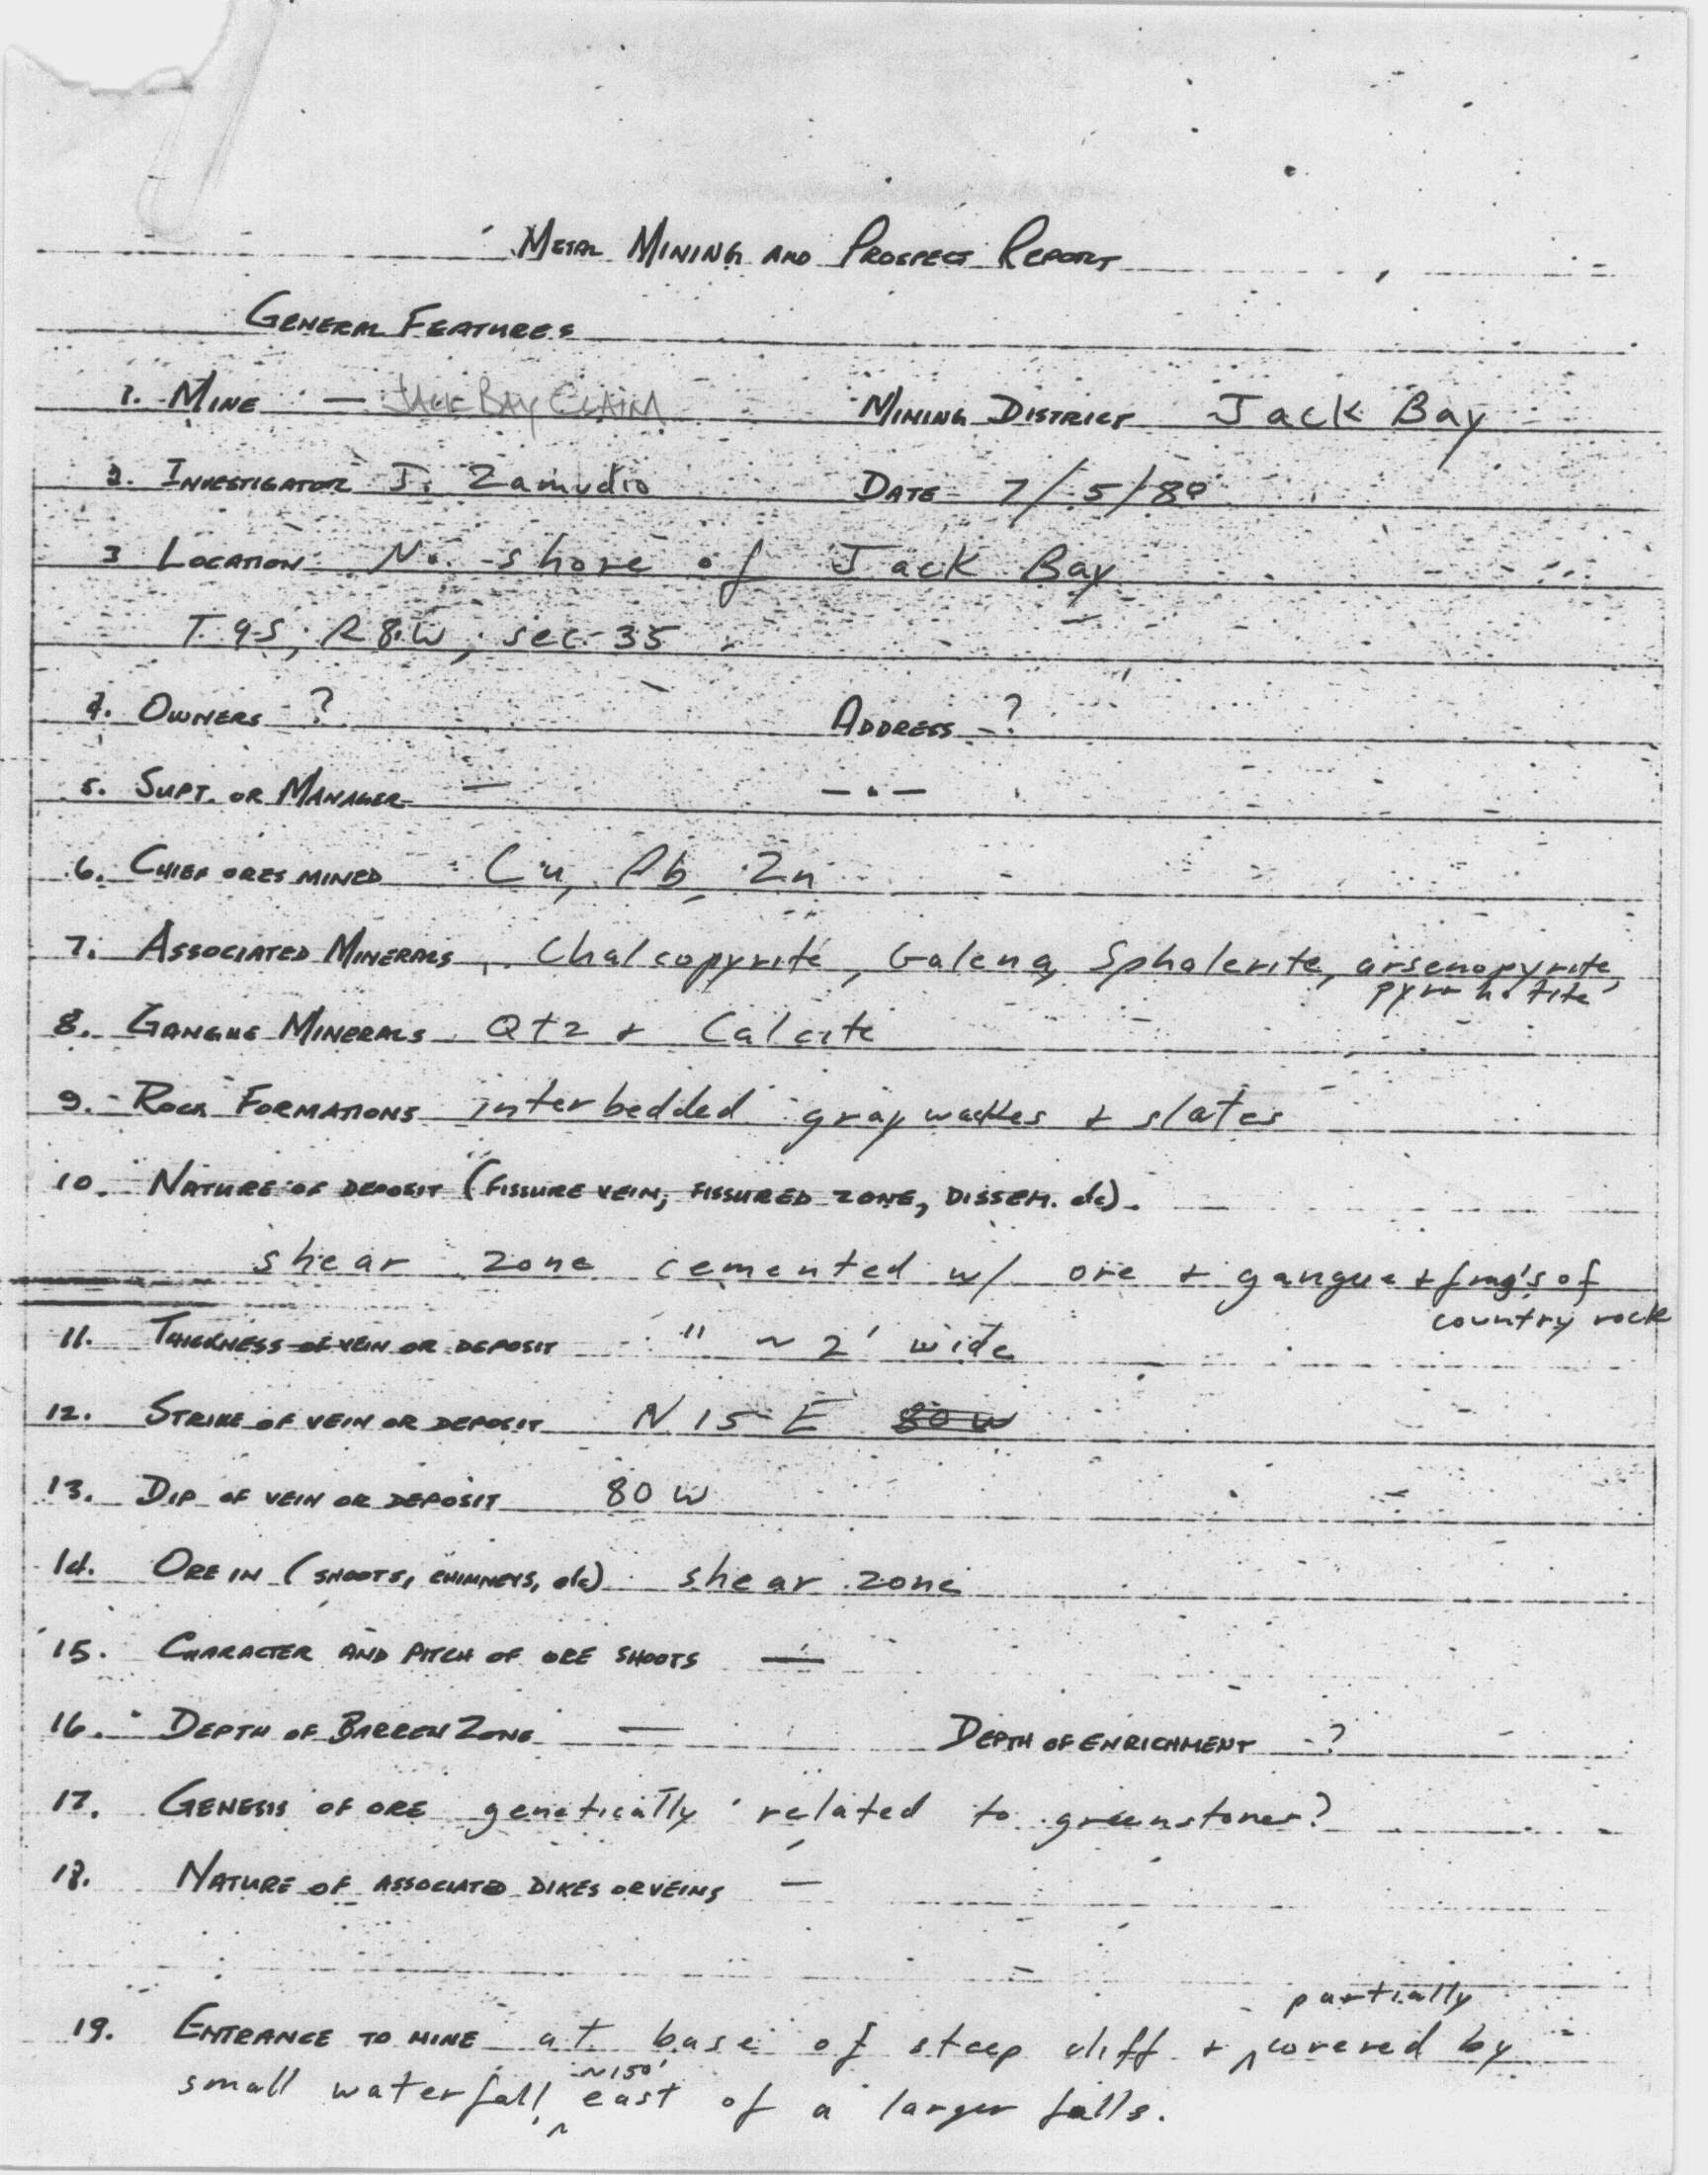 METAL MINING AND PROSPECT REPORT
GENERAL FEATURES
1. MINE — JACK BAY CLAIM MINING DISTRICT Jack Bay
2. INVESTIGATOR J. Zamudio DATE 7/5/80
3 LOCATION No. shore of Jack Bay
T. 9S, R 8W, sec. 35
4. OWNERS ? ADDRESS - ?
5. SUPT. OR MANAGER — — " —
6. CHIEF ORES MINED Cu, Pb, Zn
7. ASSOCIATED MINERALS Chalcopyrite, Galena, Sphalerite, arsenopyrite,
pyrrhotite
8. GANGUE MINERALS Qtz + Calcite
9. ROCK FORMATIONS interbedded graywackes + slates
10. NATURE OF DEPOSIT (FISSURE VEIN, FISSURED ZONE, DISSEM. etc).
shear zone cemented w/ ore + gangue + frag's of
country rock
11. THICKNESS OF VEIN OR DEPOSIT " ~ 2' wide
12. STRIKE OF VEIN OR DEPOSIT N 15 E 80 W
13. DIP OF VEIN OR DEPOSIT 80 W
14. ORE IN (SHOOTS, CHIMNEYS, etc) shear zone
15. CHARACTER AND PITCH OF ORE SHOOTS —
16. DEPTH OF BARREN ZONE — DEPTH OF ENRICHMENT - ?
17. GENESIS OF ORE genetically related to greenstones?
18. NATURE OF ASSOCIATED DIKES OR VEINS —
partially
19. ENTRANCE TO MINE at base of steep cliff + ^ covered by
~150'
small waterfall, ^ east of a larger falls.